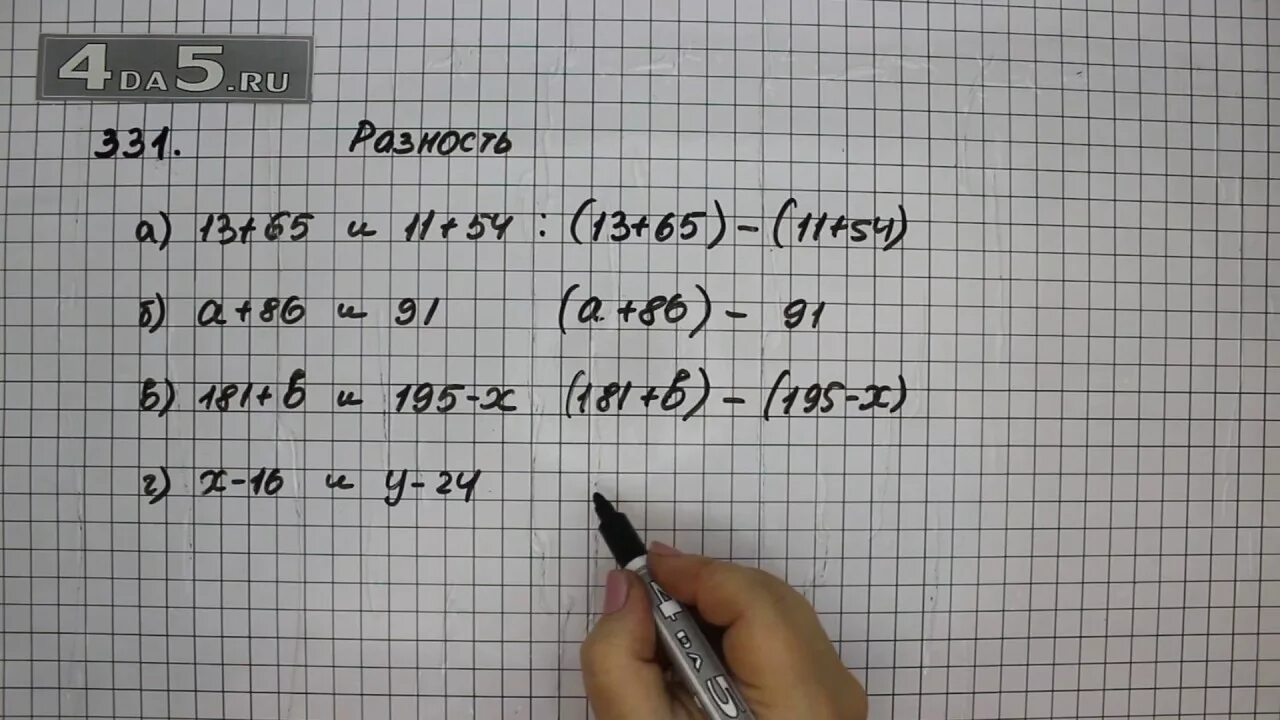 4DA5.RU
331. Разность
а) 13+65 и 11+54 : (13+65)-(11+54)
б) а+86 и 91 (а+86)- 91
в) 181+в и 195-х (181+в)-(195-х)
г) х-16 и у-24
4 БАЛ 5